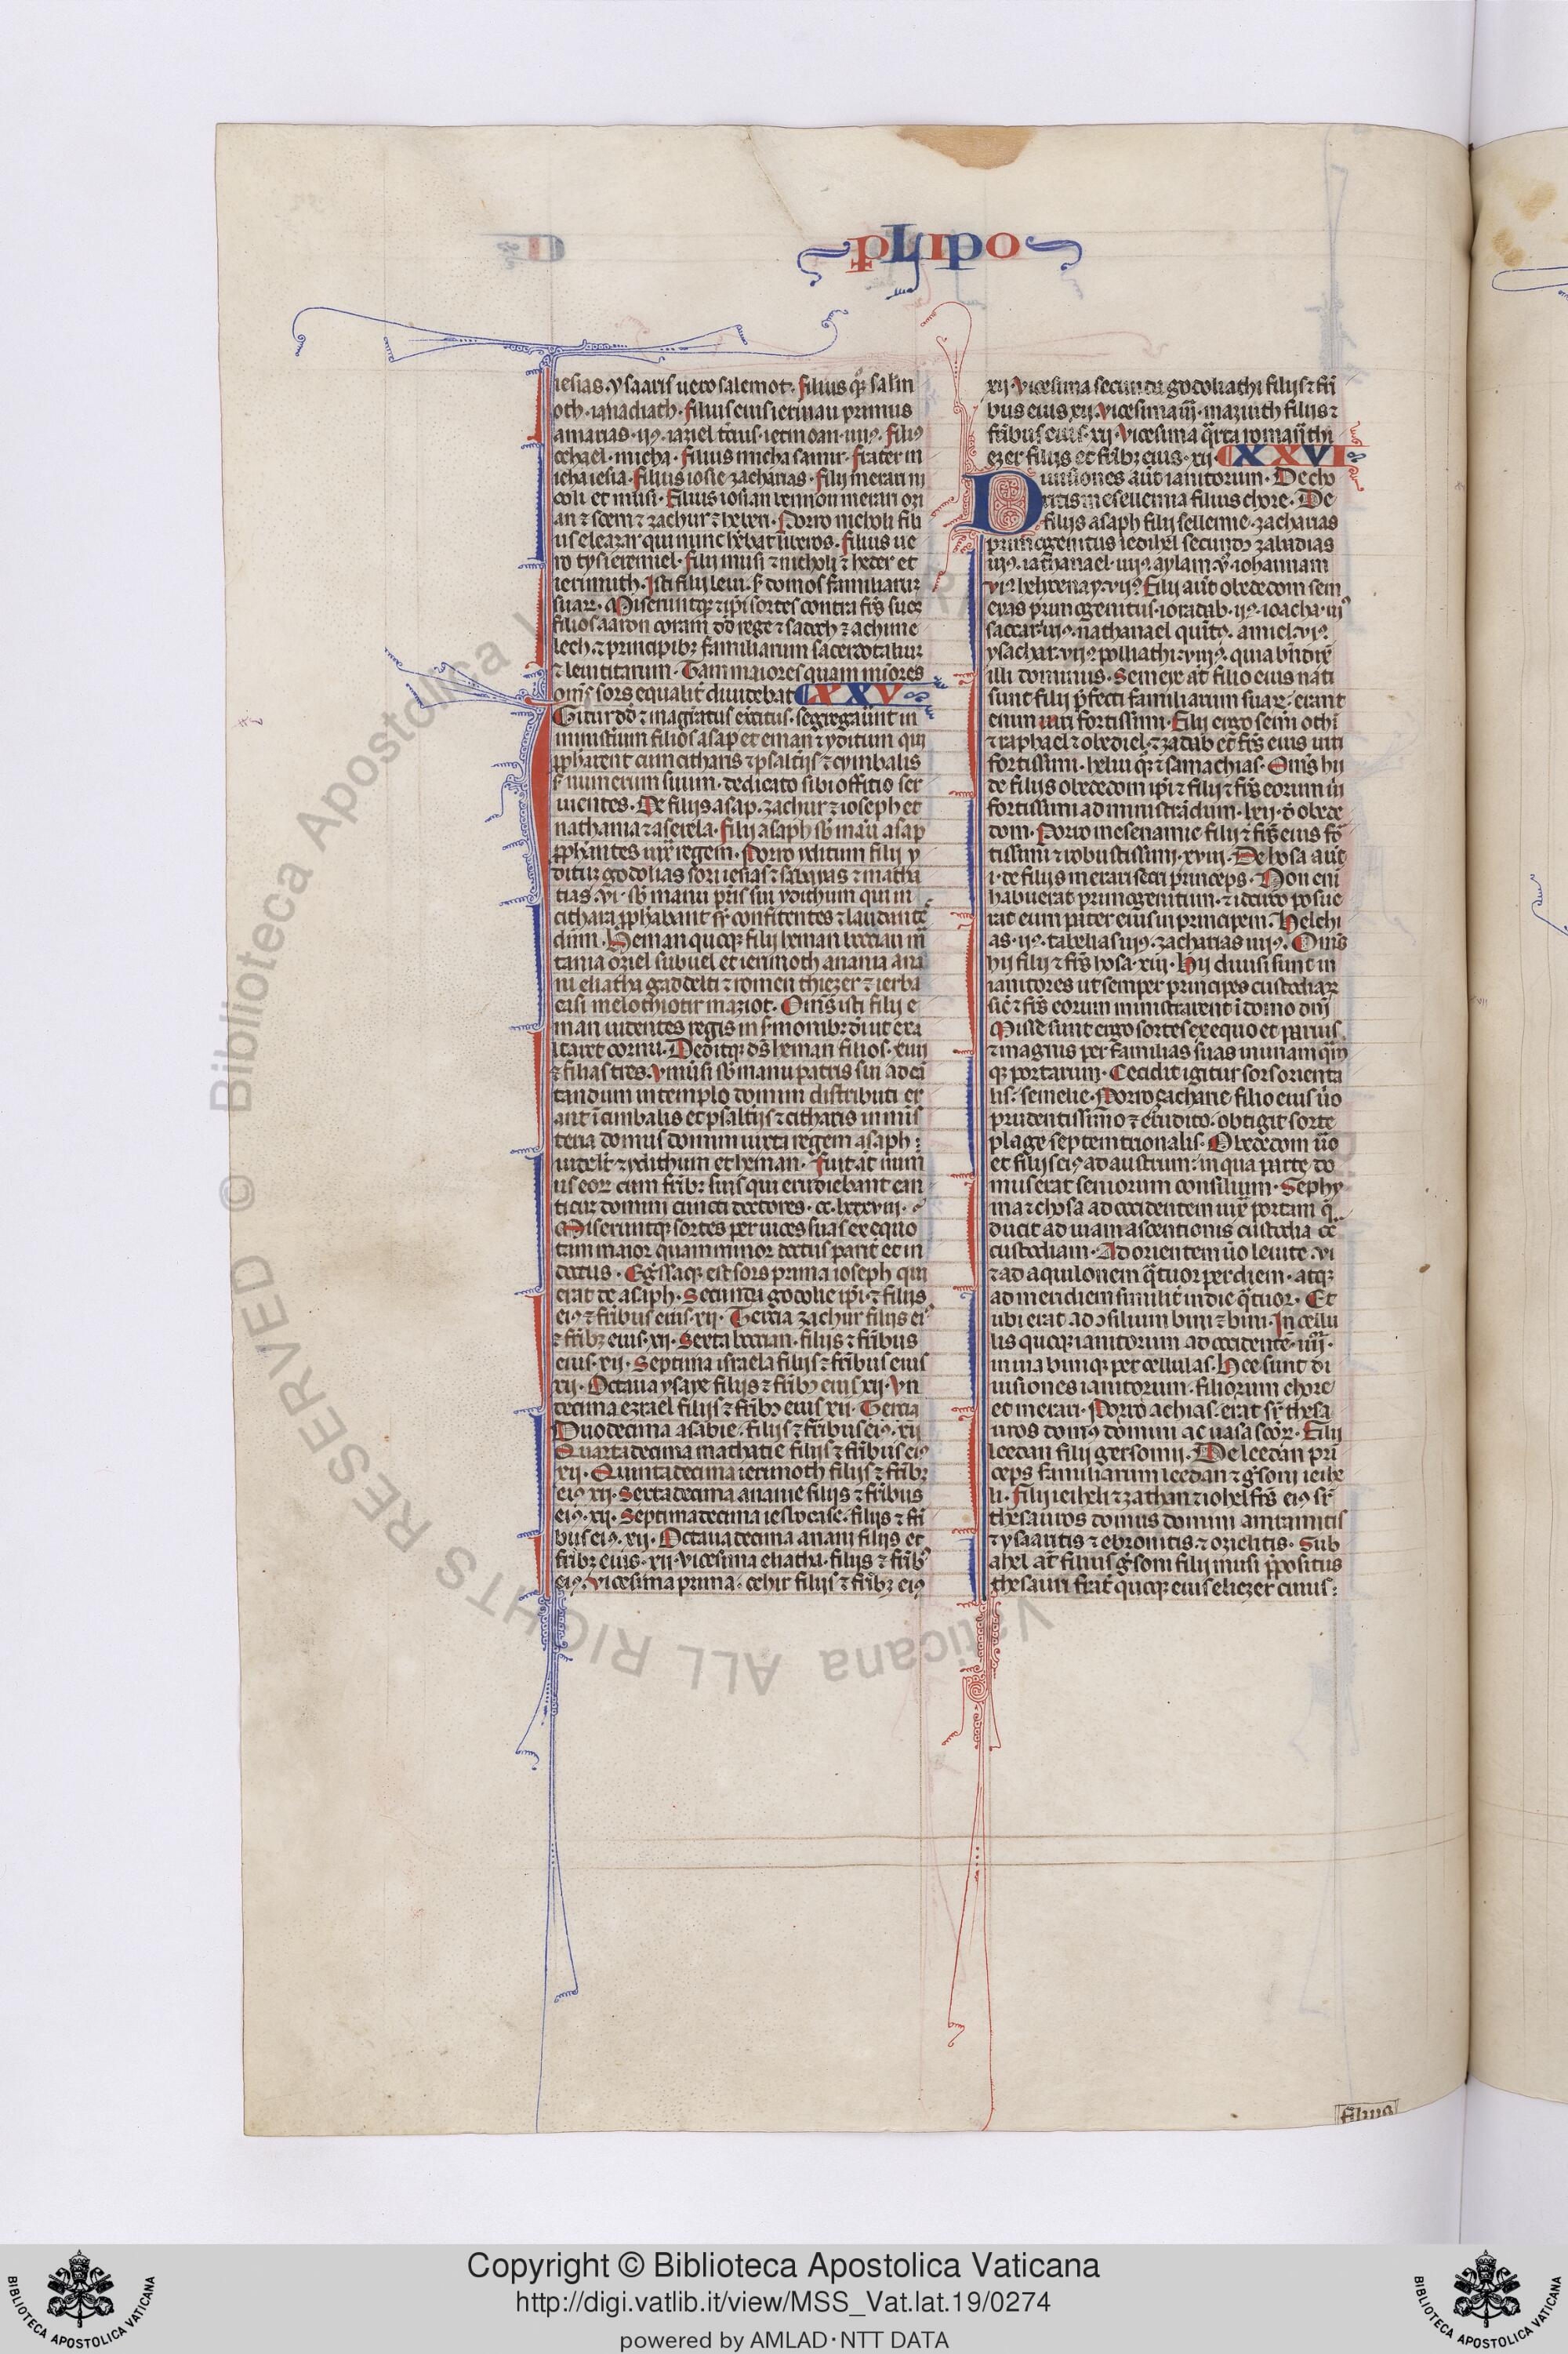 pLipo
iesias. ysaaris uero salemot. filius q̄ȝ salm
oth. ianadiath. filius eius ieriuau primus
amarias. ii9. iaziel t̄cius. iecmoan. iiii9. fili9
oehael. micha. filius micha samir. frater m
icha iesia. filius iosie zacharias. filii merari m
ooli et musi. filius iosian bennon merari ozi
an ⁊ soem ⁊ zachur ⁊ heberi. Porro moholi fili
us eleazar qui nunc h̄ebat liberos. filius ue
ro cys ieremiel. filii musi ⁊ moholi ⁊ heder et
ierimuth. Isti filii leui. s̄ domos familiaruȝ
suarꝝ. Miseruntqȝ ⁊ ip̄i sortes contra fr̄es suos
filios aaron coram dd̄ rege ⁊ sadoch ⁊ achime
lech. ⁊ principibȝ familiarum sacerdotaliuȝ
⁊ leuiticarum. Tam maiores quam minores
om̄s sors equalit̄ diuidebat XXV
Gitur dd̄ ⁊ magr̄atus exc̄itus. segregauer̄nt in
ministerium filios asap et eman ⁊ yditum qui
ꝓph̄arent cum citharis ⁊ psalt̄iis ⁊ cymbalis
s̄ numerum suum. dedicato sibi offitio ser
uientes. De filiis asap. zachur ⁊ ioseph et
nathania ⁊ aserela. filii asaph sb̄ manu asap
ꝓph̄antes iux̄ regem. Porro yditum filii y
ditur godolias sori iesias ⁊ sabyas ⁊ matha
tias. vi. sb̄ manu p̄ris sui ydithum qui in
cithara ꝓph̄abant s̄r confitentes ⁊ laudante
dn̄m. Heman quoqȝ filii heman boccian m̄
tania oziel subuel et ierimoth anania ana
ni eliatha gaddelti ⁊ romen thiezer ⁊ ierba
casi melothiotir maziot. Om̄s isti filii e
man uidentes regis in s̄monibȝ di ut exa
ltaret cornu. Deditqȝ d̄s heman filios. xiiii
⁊ filias tres. vniu̇si sb̄ manu patris sui ad cā
tandum in templo domini distributi er
ant ī cimbalis et psalt̄iis ⁊ citharis in minis
teria domus domini iuxta regem asaph:
uidelt̄ ⁊ ydithum et heman. fuit āt num̄
us eoꝝ cum fr̄ibȝ suis qui erudiebant can
ticuȝ domini cuncti doctores. cc. lxxxviii.
Miseruntqȝ sortes per uices suas ex equo
tam maior quam minor doctus parit̄ et in
doctus. Eḡssaqȝ est sors prima ioseph qui
erat de asaph. Secunda godolie ip̄i. ⁊ filiis
ei9 ⁊ fr̄ibus eius. xii. Tercia zachur filiis ei9
⁊ fr̄ibȝ eius. xii. Sexta boccian. filiis ⁊ fr̄ibus
eius. xii. Septima israela filiis ⁊ fr̄ibus eius
xii. Octaua ysaye filiis ⁊ fr̄ibȝ eius xii. Vn
decima ezrael filiis ⁊ fr̄ibȝ eius xii. Tercia
Duodecima asabie. filiis ⁊ fr̄ibus ei9. xii
Quartadecima mathatie filiis ⁊ fr̄ibus ei9
xii. Quintadecima ierimoth filiis ⁊ fr̄ibȝ
ei9 xii. Sextadecima ananie filiis ⁊ fr̄ibus
ei9. xii. Septimadecima iesbocase. filiis ⁊ fr̄i
bus ei9. xii. Octauadecima anani filiis et
fr̄ibȝ eius. xii. vicesima eliatha. filiis ⁊ fr̄ibȝ
ei9. vicesima prima. oehir filiis ⁊ fr̄ibȝ ei9
xii. vicesima secunda godoliathi filiis ⁊ fr̄i
bus eius xii. vicesima iii. maziuth filiis ⁊
fr̄ibus eius. xii. vicesima q̄rta romamthi
ezer filiis et fr̄ibȝ eius. xii. XXVI
Diuisiones aut̄ ianitorum. De cho
ritis mesellemia filius chore. De
filiis asaph filii sellemie. zacharias
primogenitus iedihel secundȝ zabadias
iii9. iathanael. iiii9. aylam. v9. iohannam
vi9. helioenay. vii9. Filii aut̄ obededom sem
eyas primogenitus. iozadab. ii9. ioacha. iii9
saccar. iiii9. nathanael quīt9. amiel. vi9.
ysachar. vii9. pollathi. viii9. quia bn̄dixit
illi dominus. Semeye āt filio eius nati
sunt filii p̄fecti familiarum suaꝝ. erant
enim uiri fortissimi. Filii ergo semeie othi
⁊ raphael ⁊ obediel. ⁊ zadab et fr̄es eius uiri
fortissimi. heliu q̄ȝ ⁊ samachias. Om̄s hii
de filiis obededom ip̄i ⁊ filii ⁊ fr̄es eorum ui
fortissimi ad ministrādum. lxii. d̄ obede
dom. Porro mesenamie filii ⁊ fr̄es eius fo
tissimi ⁊ robustissimi. xviii. De hosa aut̄
i. de filiis merari secri princeps. Non eni
habuerat primogenitum. ⁊ idcirco posue
rat eum pater eius in principem. Helchi
as. ii9. tabelias iii9. zacharias iiii9. Om̄s
hii filii ⁊ fr̄es hosa. xiii. Hii diuisi sunt in
ianitores ut semper principes custodiaꝝ
sic̄ ⁊ fr̄es eorum ministrarent ī domo dn̄i
Misse sunt ergo sortes ex equo et paruis
⁊ magnis per familias suas in unam q̄m
qȝ portarum. Cecidit igitur sors orienta
lis. semelie. Porro zacharie filio eius ūo
prudentissimo ⁊ erudito. obtigit sorte
plage septemtrionalis. Obededom ūo
et filiis ei9 ad austrum. in qua parte do
mus erat seniorum consilium. Sephy
ma ⁊ chosa ad occidentem iux̄ portam q̄
ducit ad uiam ascentionis custodia cō
custodiam. Ad orientem ūo leuite. vi
⁊ ad aquilonem q̄tuor per diem. atqȝ
ad meridiem similit̄ in die q̄tuor. Et
ubi erat ad ɔsilium bini ⁊ bini. In cellu
lis quoqȝ ianitorum ad occidente. iiii.
in uia biniqȝ per cellulas. Hee sunt di
uisiones ianitorum. filiorum chore
et merari. Porro achias. erat sr̄ thesa
uros dom9 domini ac uasa scōꝝ. Filii
leedan filii gersomii. De leedan prī
ceps familiarum leedan ⁊ ḡsoni ieihe
li. Filii ieiheli ⁊ zathan ⁊ iohel fr̄es ei9 sr̄
thesauros domus domini amramitis
⁊ ysaaritis ⁊ ebronitis. ⁊ ozielitis. Sub
ahel āt filius ḡsom filii musi p̄positus
thesauri frat̄ quoqȝ eius eliezer cuius:
filius
Copyright © Biblioteca Apostolica Vaticana
http://digi.vatlib.it/view/MSS_Vat.lat.19/0274
powered by AMLAD·NTT DATA
BIBLIOTECA APOSTOLICA VATICANA
BIBLIOTECA APOSTOLICA VATICANA
© Biblioteca Apostolica Vaticana ALL RIGHTS RESERVED